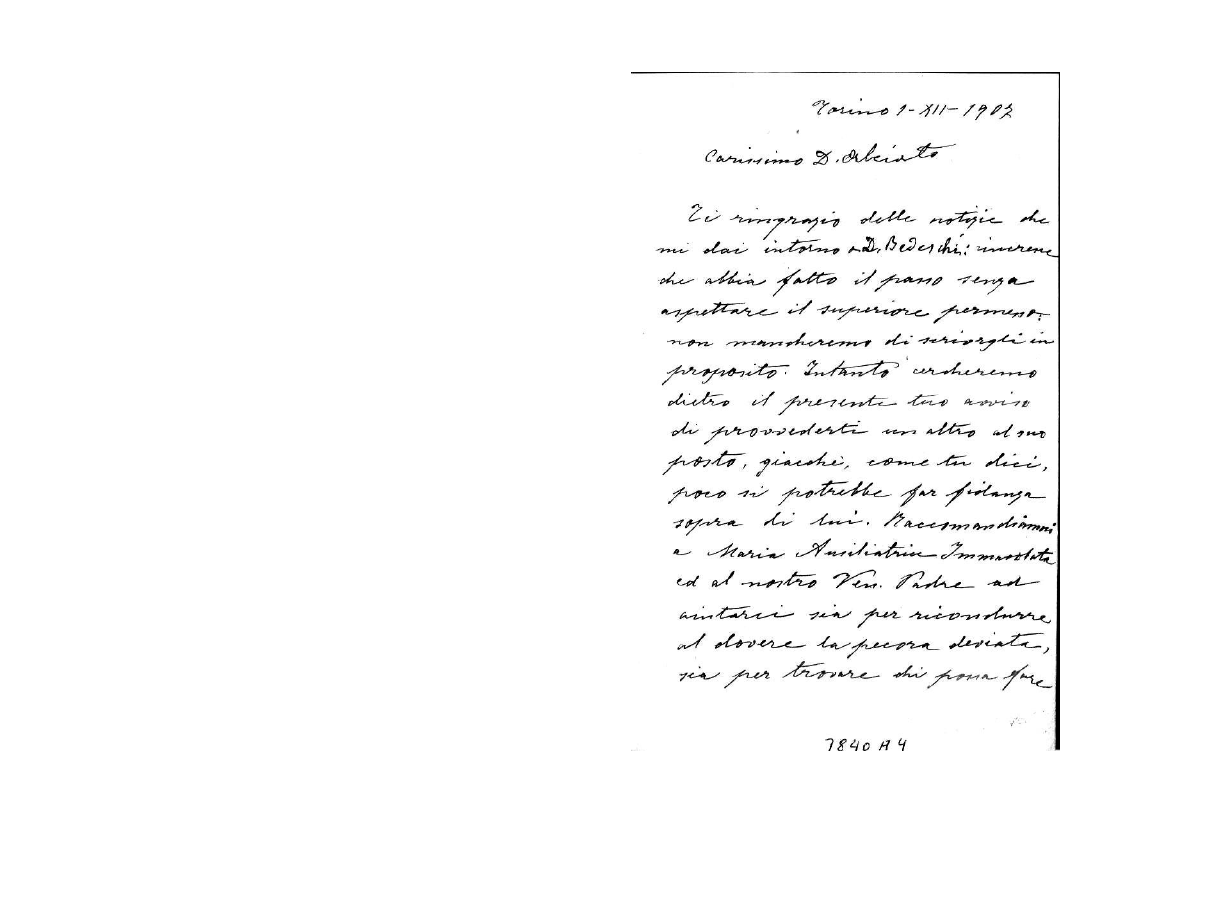 Torino 1-XII-1907
Carissimo D. Alciato
Ti ringrazio delle notizie che
mi dai intorno a D. Bedeschi: increse
che abbia fatto il passo senza
aspettare il superiore permesso:
non mancheremo di scrivergli in
proposito. Intanto cercheremo
dietro il presente tuo avviso
di provvederti un altro al suo
posto, giacchè, come tu dici,
poco si potrebbe far fidanza
sopra di lui. Raccomandiamoci
a Maria Ausiliatrice Immacolata
ed al nostro Ven. Padre ad
aiutarci sia per ricondurre
al dovere la pecora deviata,
sia per trovare chi possa fare
7840 A 4